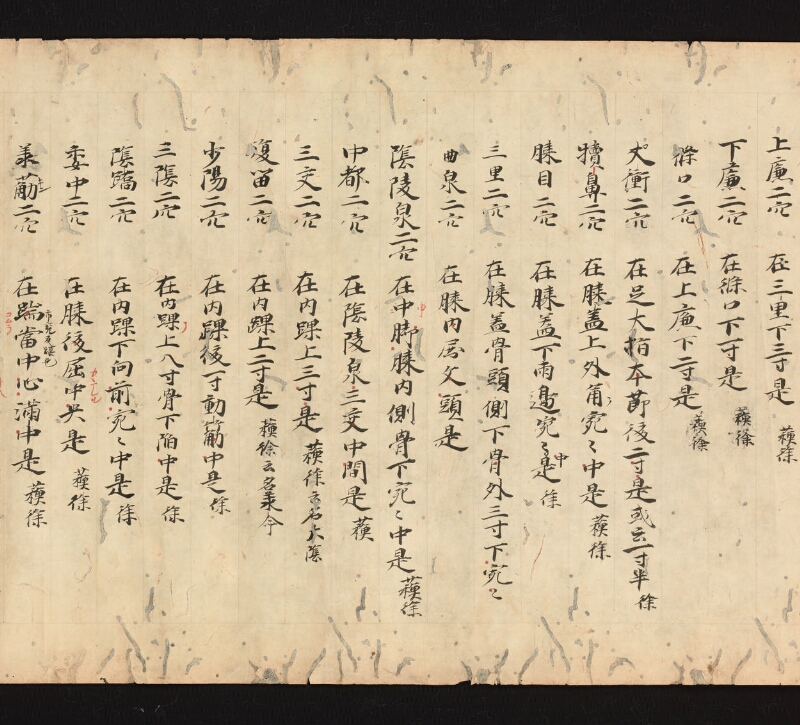 上廉二穴 在三里下三寸是 蘓徐
下廉二穴 在條口下一寸是 蘓徐
條口二穴 在上廉下二寸是 蘓徐
大衝二穴 在足大指本節後二寸是或云一寸半 徐
犢鼻二穴 在膝盖上外角宛〻中是 蘓徐
膝目二穴 在膝盖下兩邊宛〻中是 徐
三里二穴 在膝盖骨頭側下骨外三寸下宛〻
曲泉二穴 在膝内屈文頭是
陰陵泉二穴 在中脚膝内側骨下宛〻中是 蘓徐
中都二穴 在陰陵泉三交中間是 蘓
三交二穴 在内踝上三寸是 蘓徐云名太陰
復留二穴 在内踝上二寸是 蘓徐云名
少陽二穴 在内踝後一寸動筋中是 徐
三陰二穴 在内踝上八寸骨下陷中是 徐
陰蹻二穴 在内踝下向前宛〻中是 徐
委中二穴 在膝後屈中央是 蘓徐
承筋二穴 在踹當中沁滿中是 蘓徐